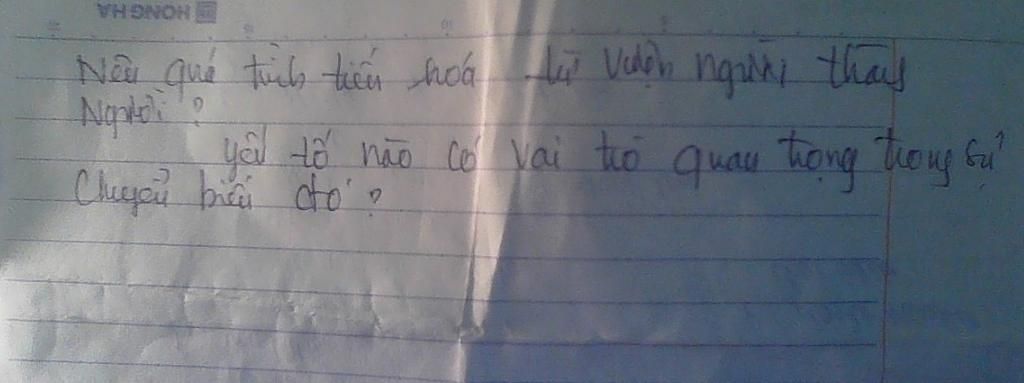 HONG HA
Nêu quá trình tiến hoá từ vượn người thành
Người?
yếu tố nào có vai trò quan trọng trong sự
Chuyển biến đó?